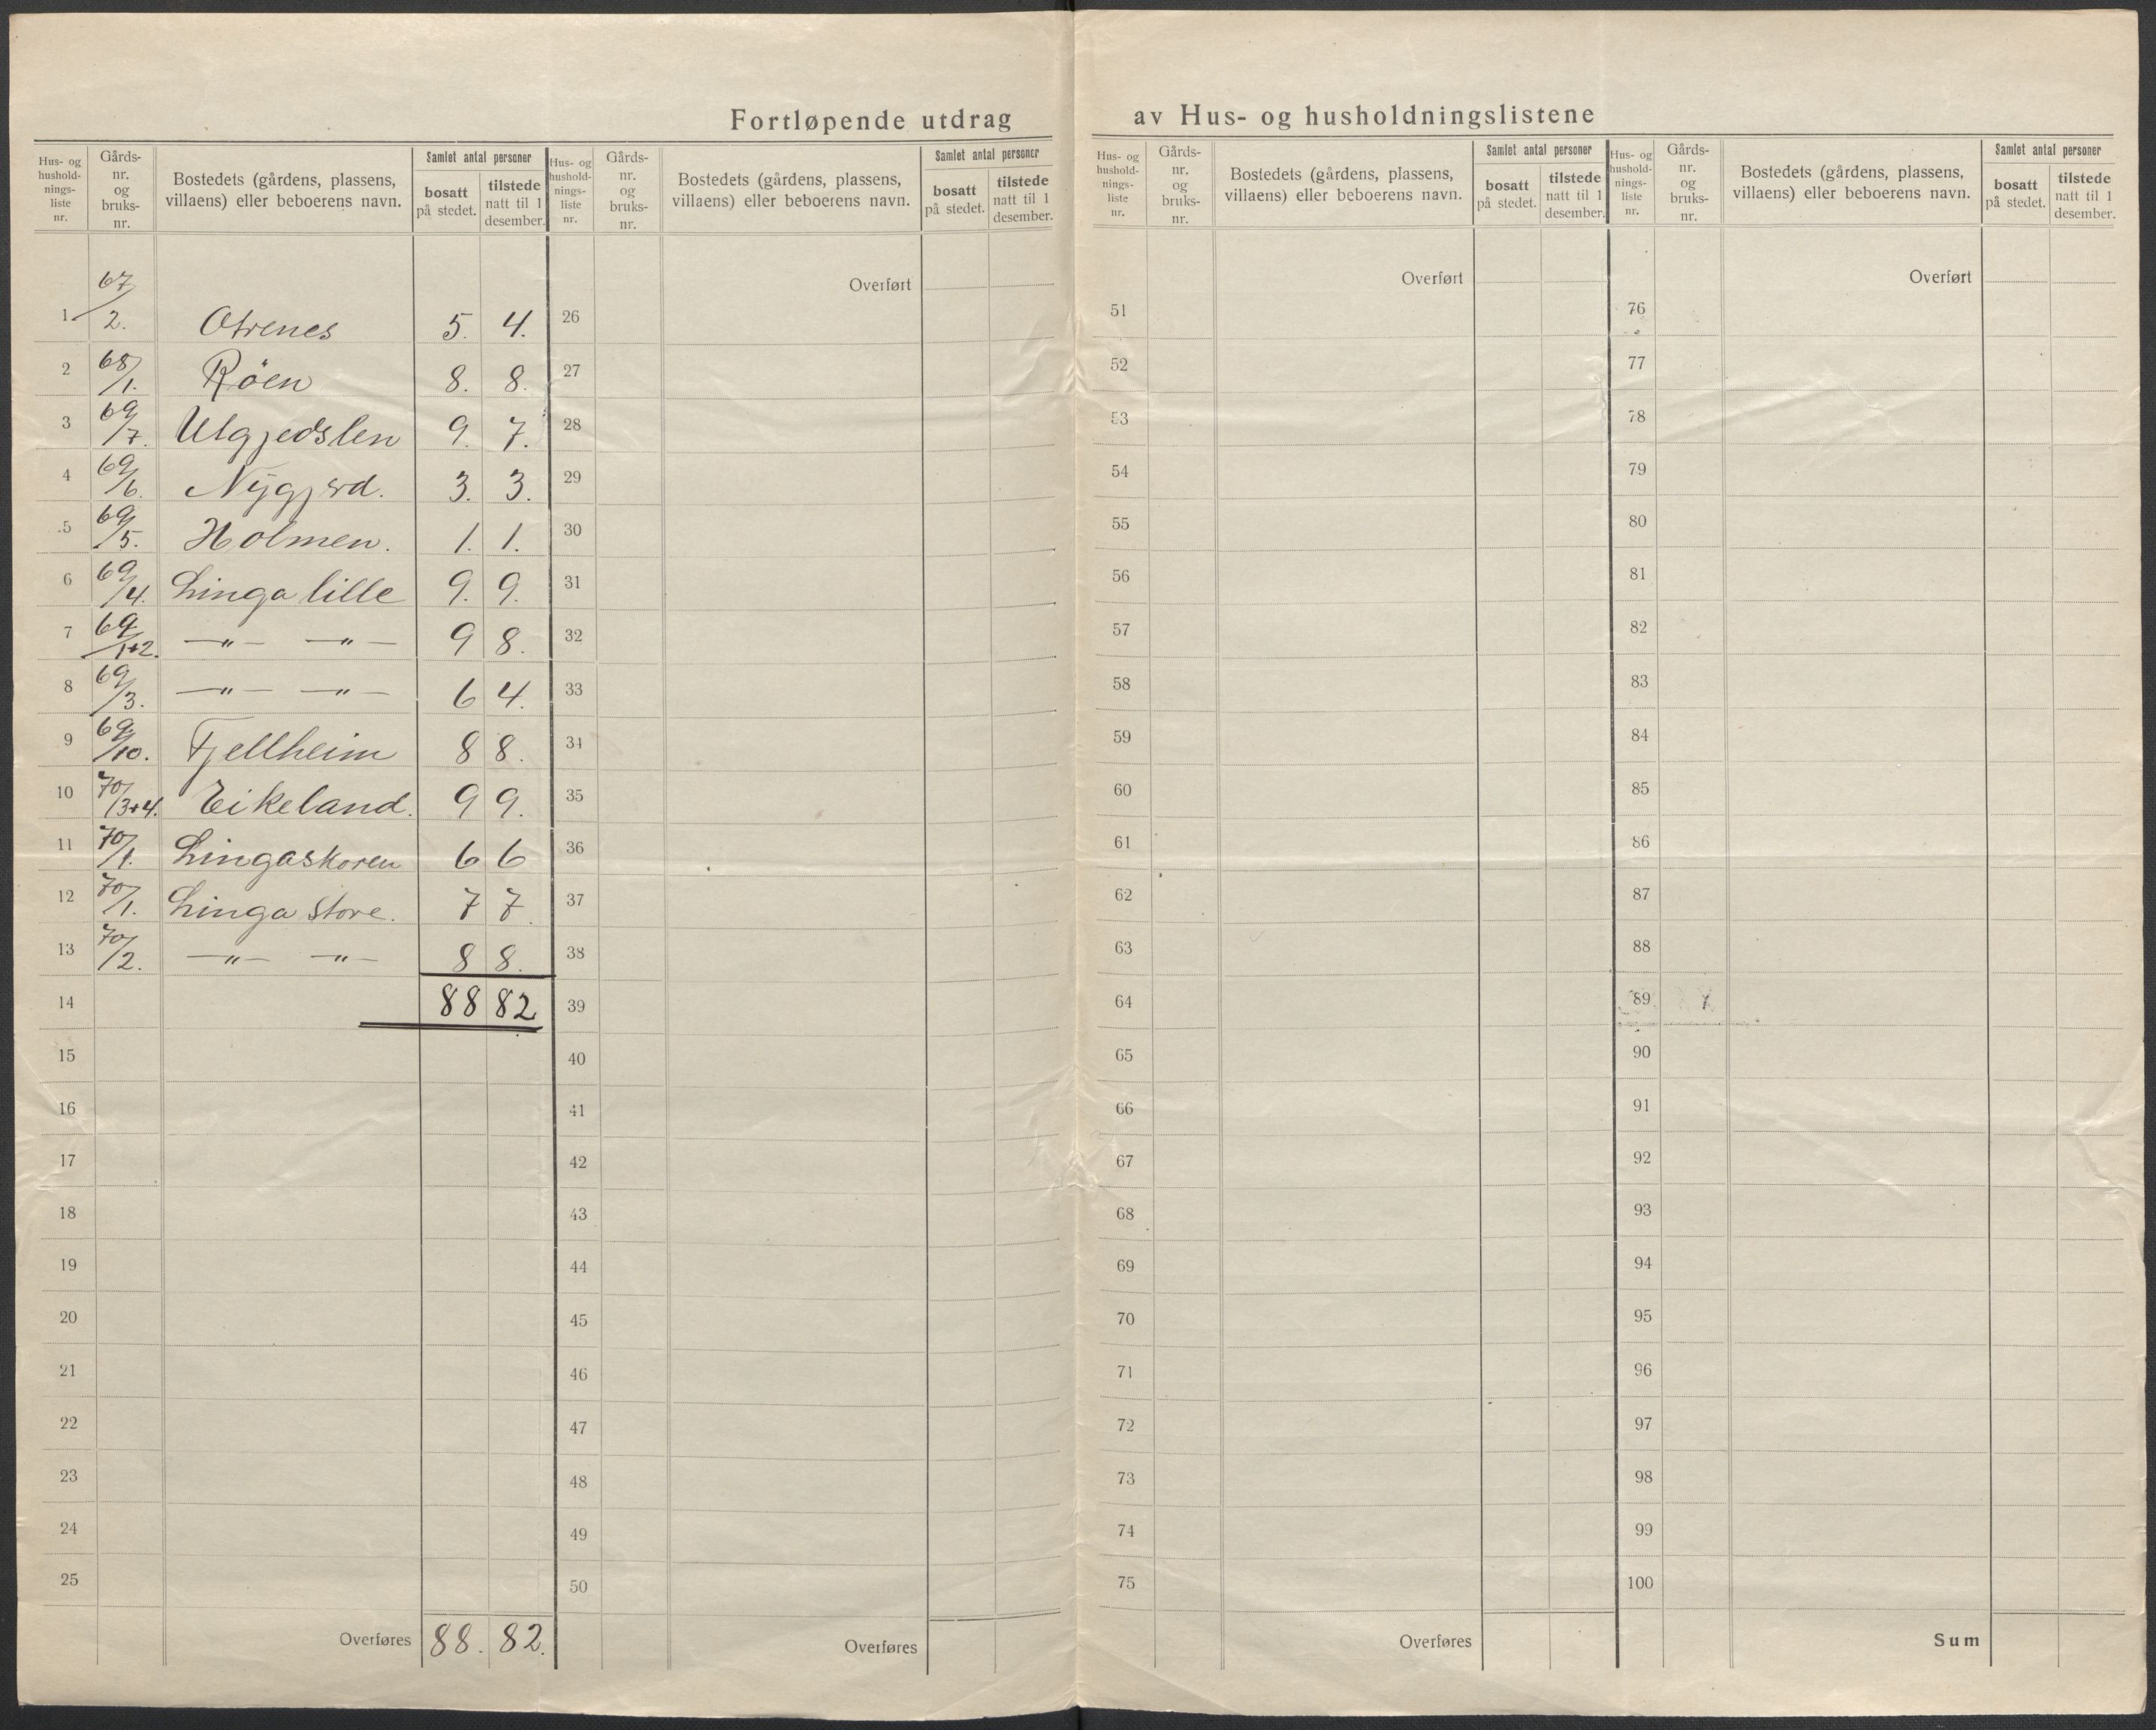 Fortløpende utdrag av Hus- og husholdningslistene
Hus- og hushold-nings-liste nr. | Gårds-nr. og bruks-nr. | Bostedets (gårdens, plassens, villaens) eller beboerens navn. | Samlet antal personer | bosatt på stedet. | tilstede natt til 1 desember.
1 67/2. Otrenes 5. 4.
2 68/1. Röen 8. 8.
3 69/7. Utgjedslen 9. 7.
4 69/6. Nygjerd. 3. 3.
5 69/5. Holmen. 1. 1.
6 69/4. Linga lille 9. 9.
7 69/1+2. —"— —"— 9 8.
8 69/3. —"— —"— 6 4.
9 69/10. Fjellheim 8 8.
10 70/3+4. Eikeland. 9 9.
11 70/1. Lingaskoren 6 6
12 70/1. Linga store. 7 7.
13 70/2. —"— —"— 8 8.
14 88 82
15
16
17
18
19
20
21
22
23
24
25
Overføres 88. 82.
Hus- og hushold-nings-liste nr. | Gårds-nr. og bruks-nr. | Bostedets (gårdens, plassens, villaens) eller beboerens navn. | Samlet antal personer | bosatt på stedet. | tilstede natt til 1 desember.
Overført
26
27
28
29
30
31
32
33
34
35
36
37
38
39
40
41
42
43
44
45
46
47
48
49
50
Overføres
Hus- og hushold-nings-liste nr. | Gårds-nr. og bruks-nr. | Bostedets (gårdens, plassens, villaens) eller beboerens navn. | Samlet antal personer | bosatt på stedet. | tilstede natt til 1 desember.
Overført
51
52
53
54
55
56
57
58
59
60
61
62
63
64
65
66
67
68
69
70
71
72
73
74
75
Overføres
Hus- og hushold-nings-liste nr. | Gårds-nr. og bruks-nr. | Bostedets (gårdens, plassens, villaens) eller beboerens navn. | Samlet antal personer | bosatt på stedet. | tilstede natt til 1 desember.
Overført
76
77
78
79
80
81
82
83
84
85
86
87
88
89
90
91
92
93
94
95
96
97
98
99
100
Sum